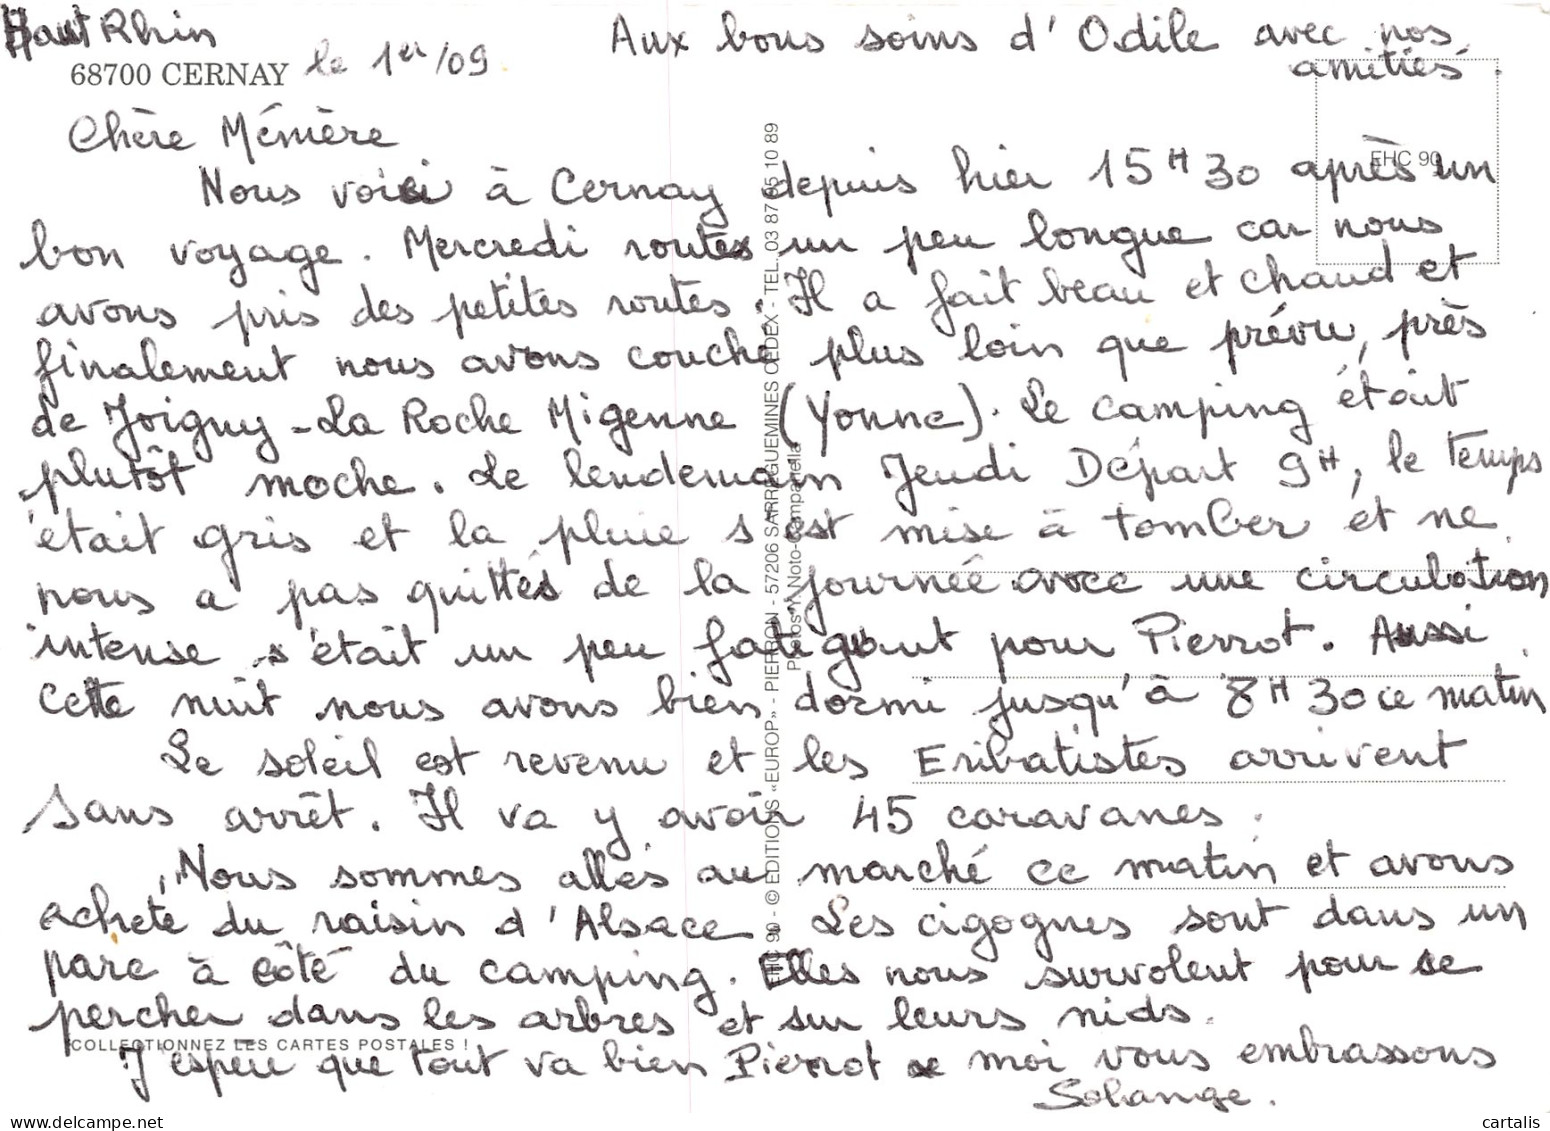 Haut Rhin
Aux bons soins d'Odile avec nos
amitiés.
68700 CERNAY le 1er/09
Chère Mémère
EHC 90
Nous voici à Cernay depuis hier 15H30 après un
bon voyage. Mercredi routes un peu longue car nous
avons pris des petites routes. Il a fait beau et chaud et
finalement nous avons couché plus loin que prévu, près
de Joigny-La Roche Migenne (Yonne). Le camping était
plutôt moche. Le lendemain Jeudi Départ 9H, le temps
était gris et la pluie s'est mise à tomber et ne
nous a pas quittés de la journée avec une circulation
intense s'était un peu fatigant pour Pierrot. Aussi
cette nuit nous avons bien dormi jusqu'à 8H30 ce matin
Le soleil est revenu et les Eribatistes arrivent
sans arrêt. Il va y avoir 45 caravanes.
Nous sommes allés au marché ce matin et avons
acheté du raisin d'Alsace. Les cigognes sont dans un
parc à côté du camping. Elles nous survolent pour se
percher dans les arbres et sur leurs nids.
J'espère que tout va bien Pierrot et moi vous embrassons
Solange.
COLLECTIONNEZ LES CARTES POSTALES !
EHC 90 - © EDITIONS «EUROP» - PIERRON - 57206 SARREGUEMINES CEDEX - TEL. 03 87 95 10 89
Photos Y. Noto-Campanella
cartalis